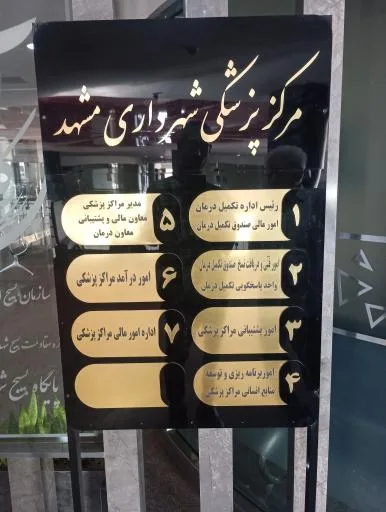 مرکز پزشکی شهرداری مشهد
۱
رئیس اداره تکمیل درمان
امور مالی صندوق تکمیل درمان
۲
امور فنی و دریافت نسخ صندوق تکمیل درمان
واحد پاسخگویی تکمیل درمان
۳
امور پشتیبانی مراکز پزشکی
۴
امور برنامه ریزی و توسعه
منابع انسانی مراکز پزشکی
۵
مدیر مراکز پزشکی
معاون مالی و پشتیبانی
معاون درمان
۶
امور درآمد مراکز پزشکی
۷
اداره امور مالی مراکز پزشکی
سازمان بسیج
پایگاه بسیج